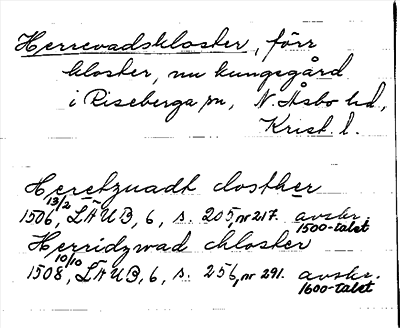 Herrevadskloster, förr
kloster, nu kungsgård
i Riseberga sn, N. Åsbo hd,
Krist. l.
Heretzuadt closther
1506 13/2, LÄUB, 6, s. 205, nr 217. avskr. 1500-talet
Herridzwad chloster
1508 10/10, LÄUB, 6, s. 256, nr 291. avskr. 1600-talet